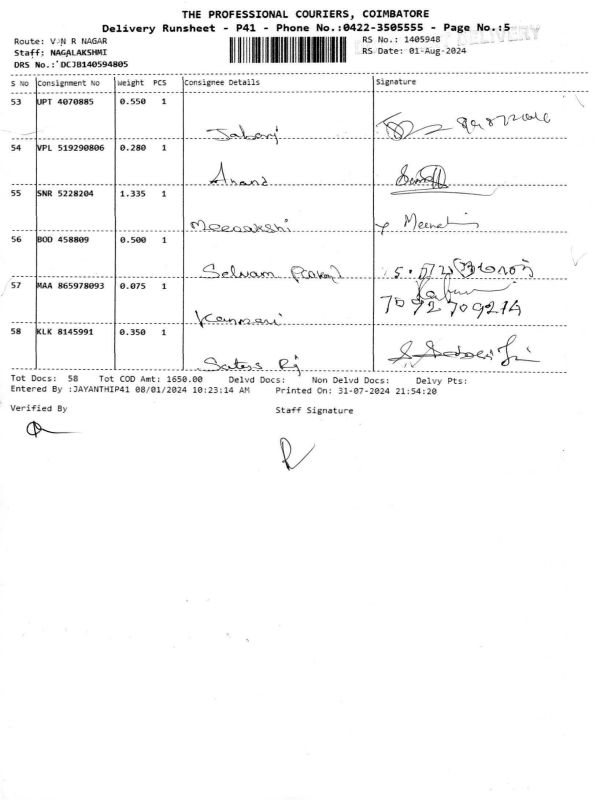 THE PROFESSIONAL COURIERS, COIMBATORE
Delivery Runsheet - P41 - Phone No.:0422-3505555 - Page No.:5
DELIVERY
Route: V N R NAGAR
RS No.: 1405948
Staff: NAGALAKSHMI
RS Date: 01-Aug-2024
DRS No.: DCJB140594805
S No Consignment No Weight PCS Consignee Details Signature
53 UPT 4070885 0.550 1
54 VPL 519290806 0.280 1
Anand
55 SNR 5228204 1.335 1
Meenakshi
56 BOD 458809 0.500 1
Selvam
57 MAA 865978093 0.075 1
Kanmani
58 KLK 8145991 0.350 1
Tot Docs: 58 Tot COD Amt: 1650.00 Delvd Docs: Non Delvd Docs: Delvy Pts:
Entered By :JAYANTHIP41 08/01/2024 10:23:14 AM Printed On: 31-07-2024 21:54:20
Verified By
Staff Signature